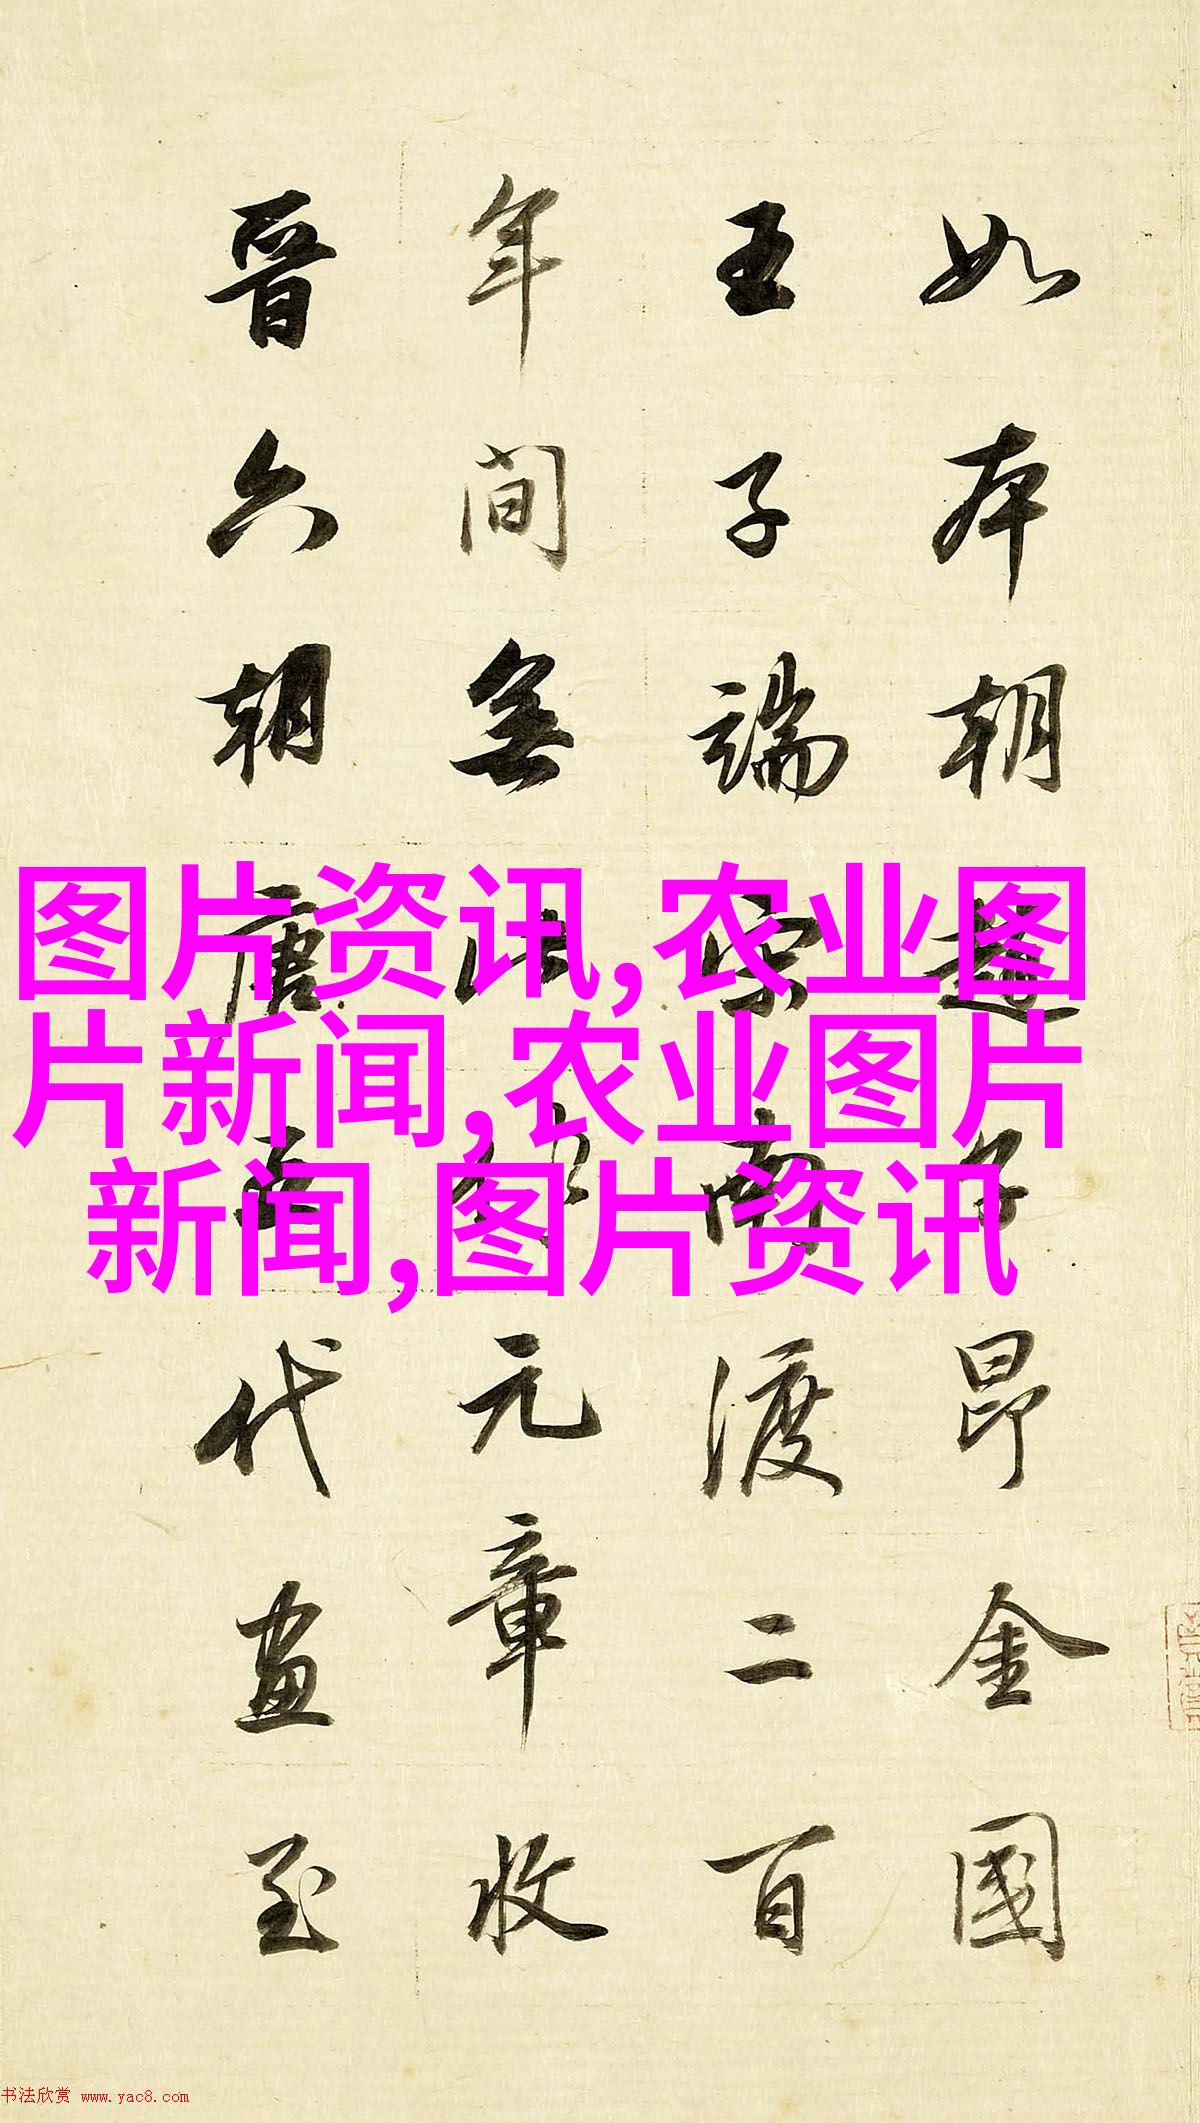 如本朝趙子昂金國
王子端宋南渡二百
年間無此書元章收
晉六朝唐五代畫至
图片资讯,农业图
片新闻,农业图片
新闻,图片资讯
书法欣赏 www.yac8.com